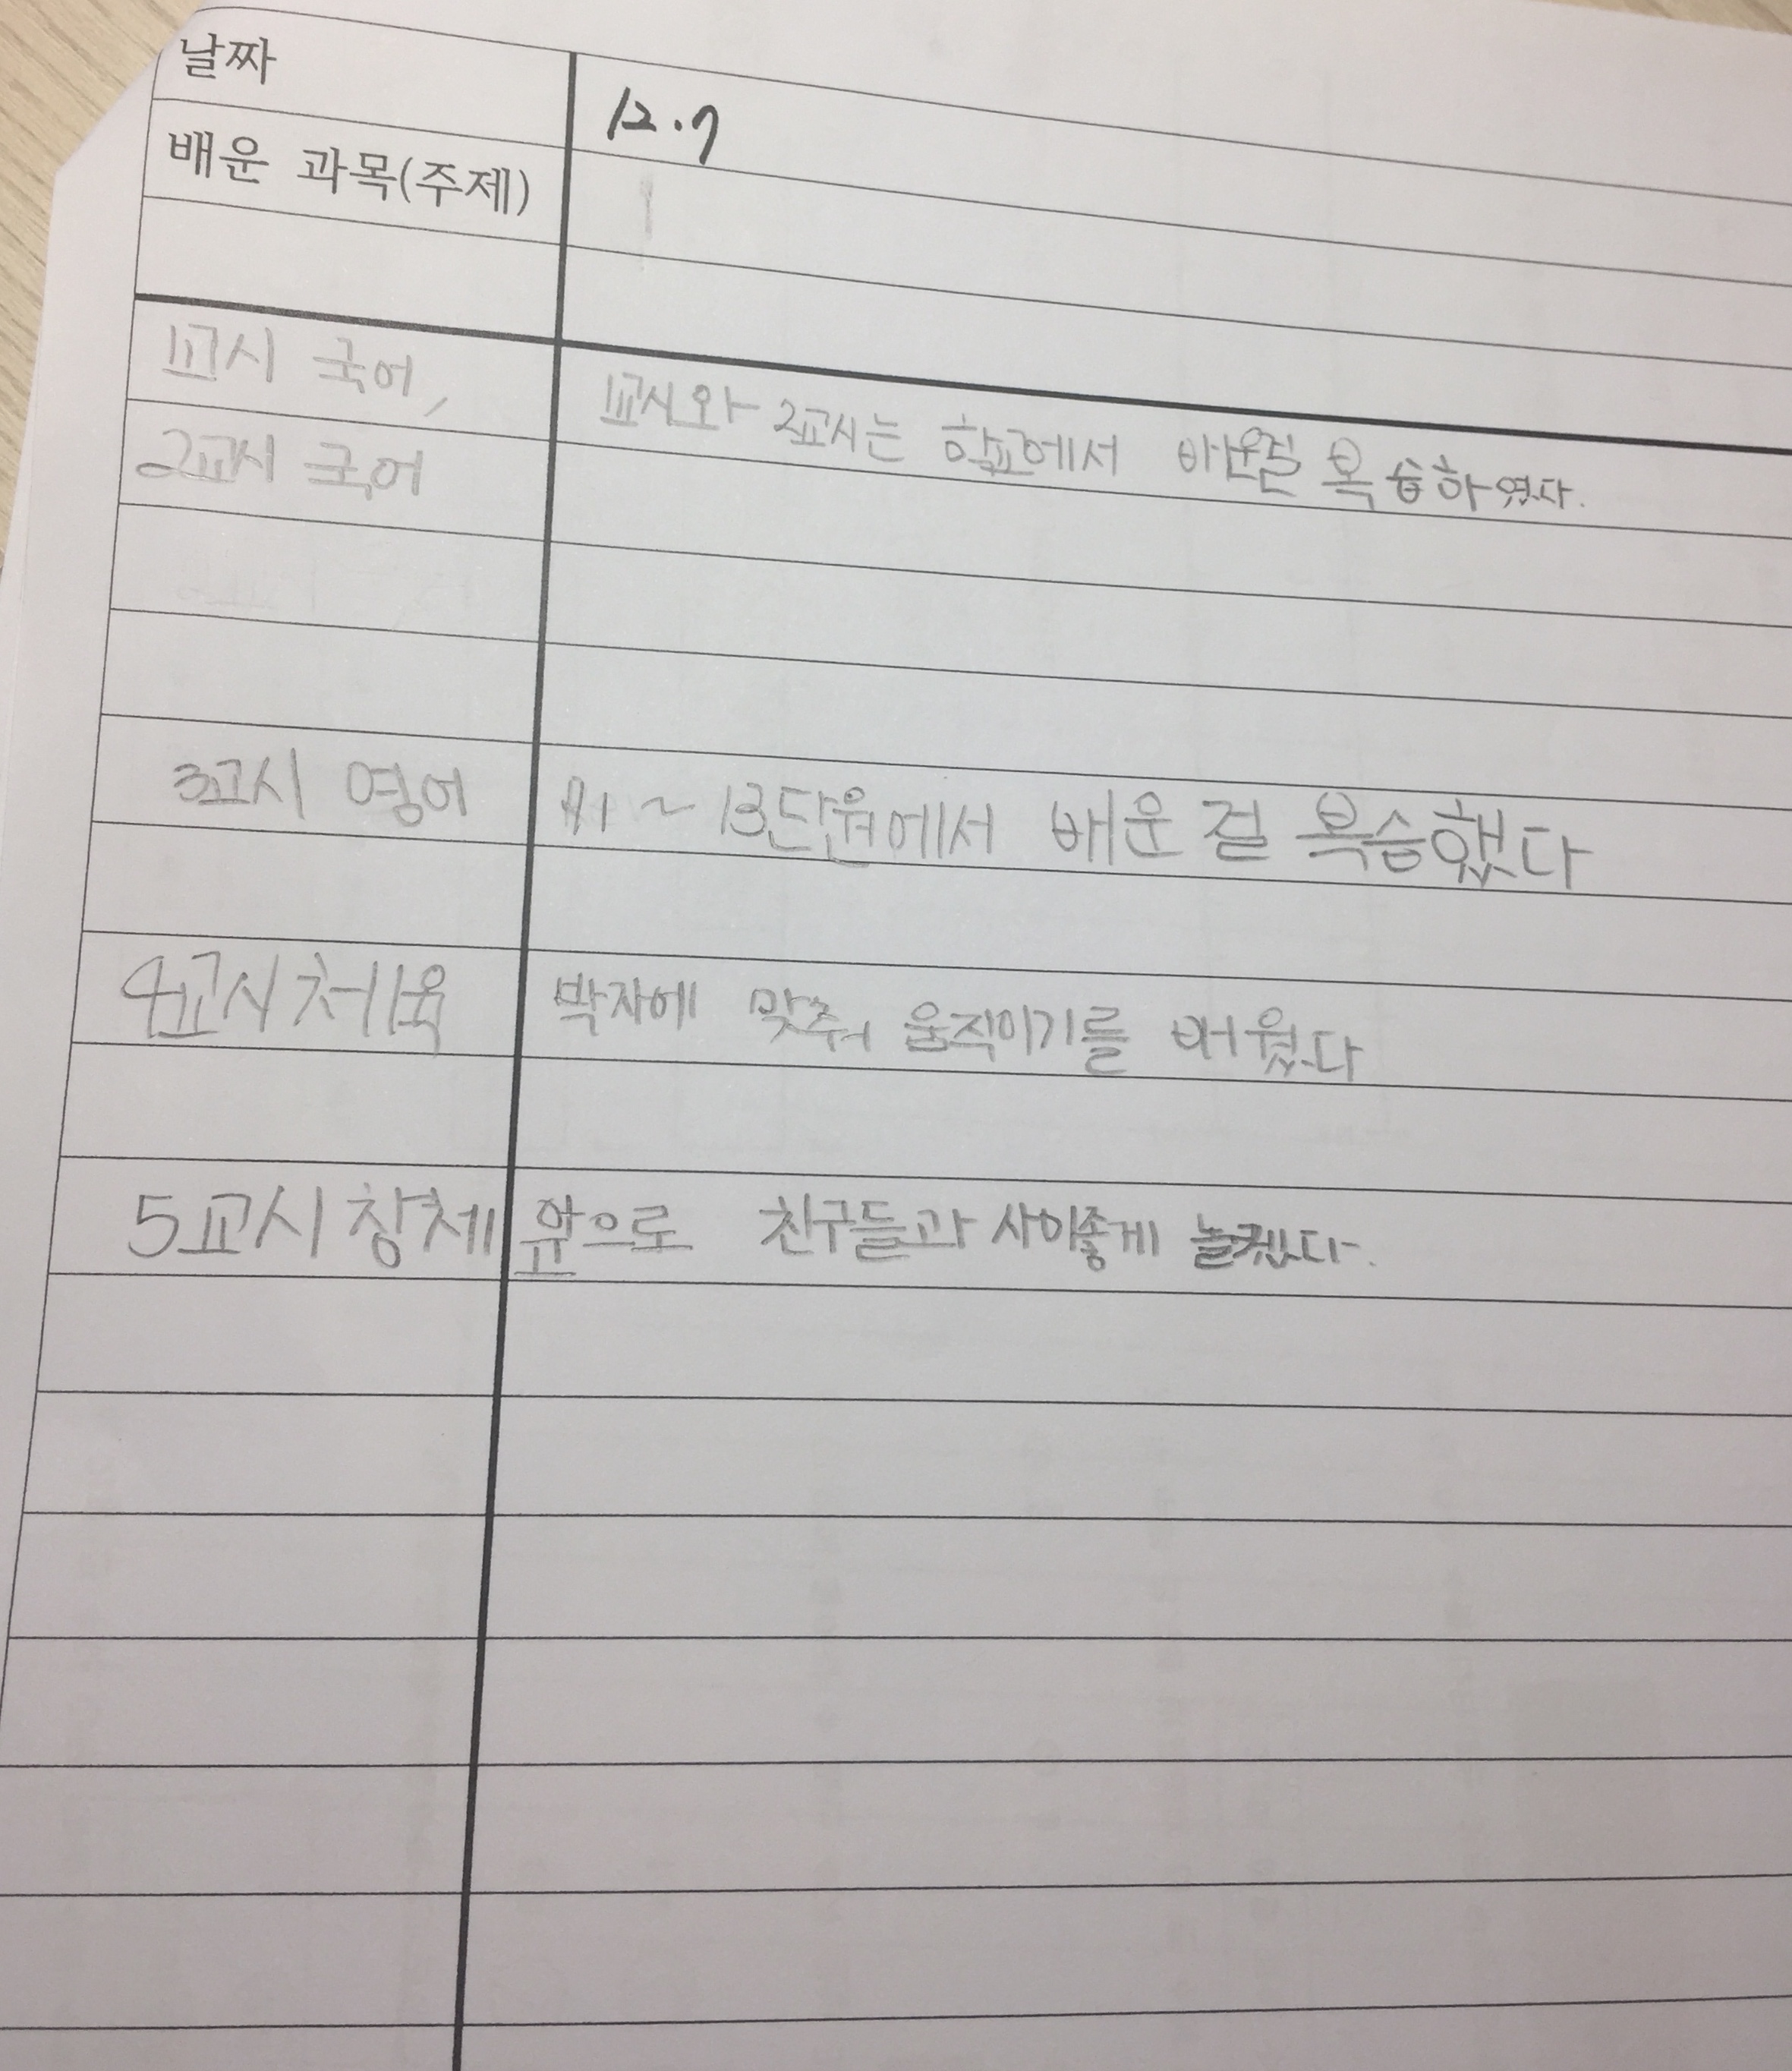 날짜
12.7
배운 과목(주제)
1교시 국어,
1교시와 2교시는 학교에서 배운걸 복습하였다.
2교시 국어
3교시 영어
~13단원에서 배운 걸 복습했다
4교시 체육
박자에 맞춰 움직이기를 배웠다
5교시 창체
앞으로 친구들과 사이좋게 놀겠다.